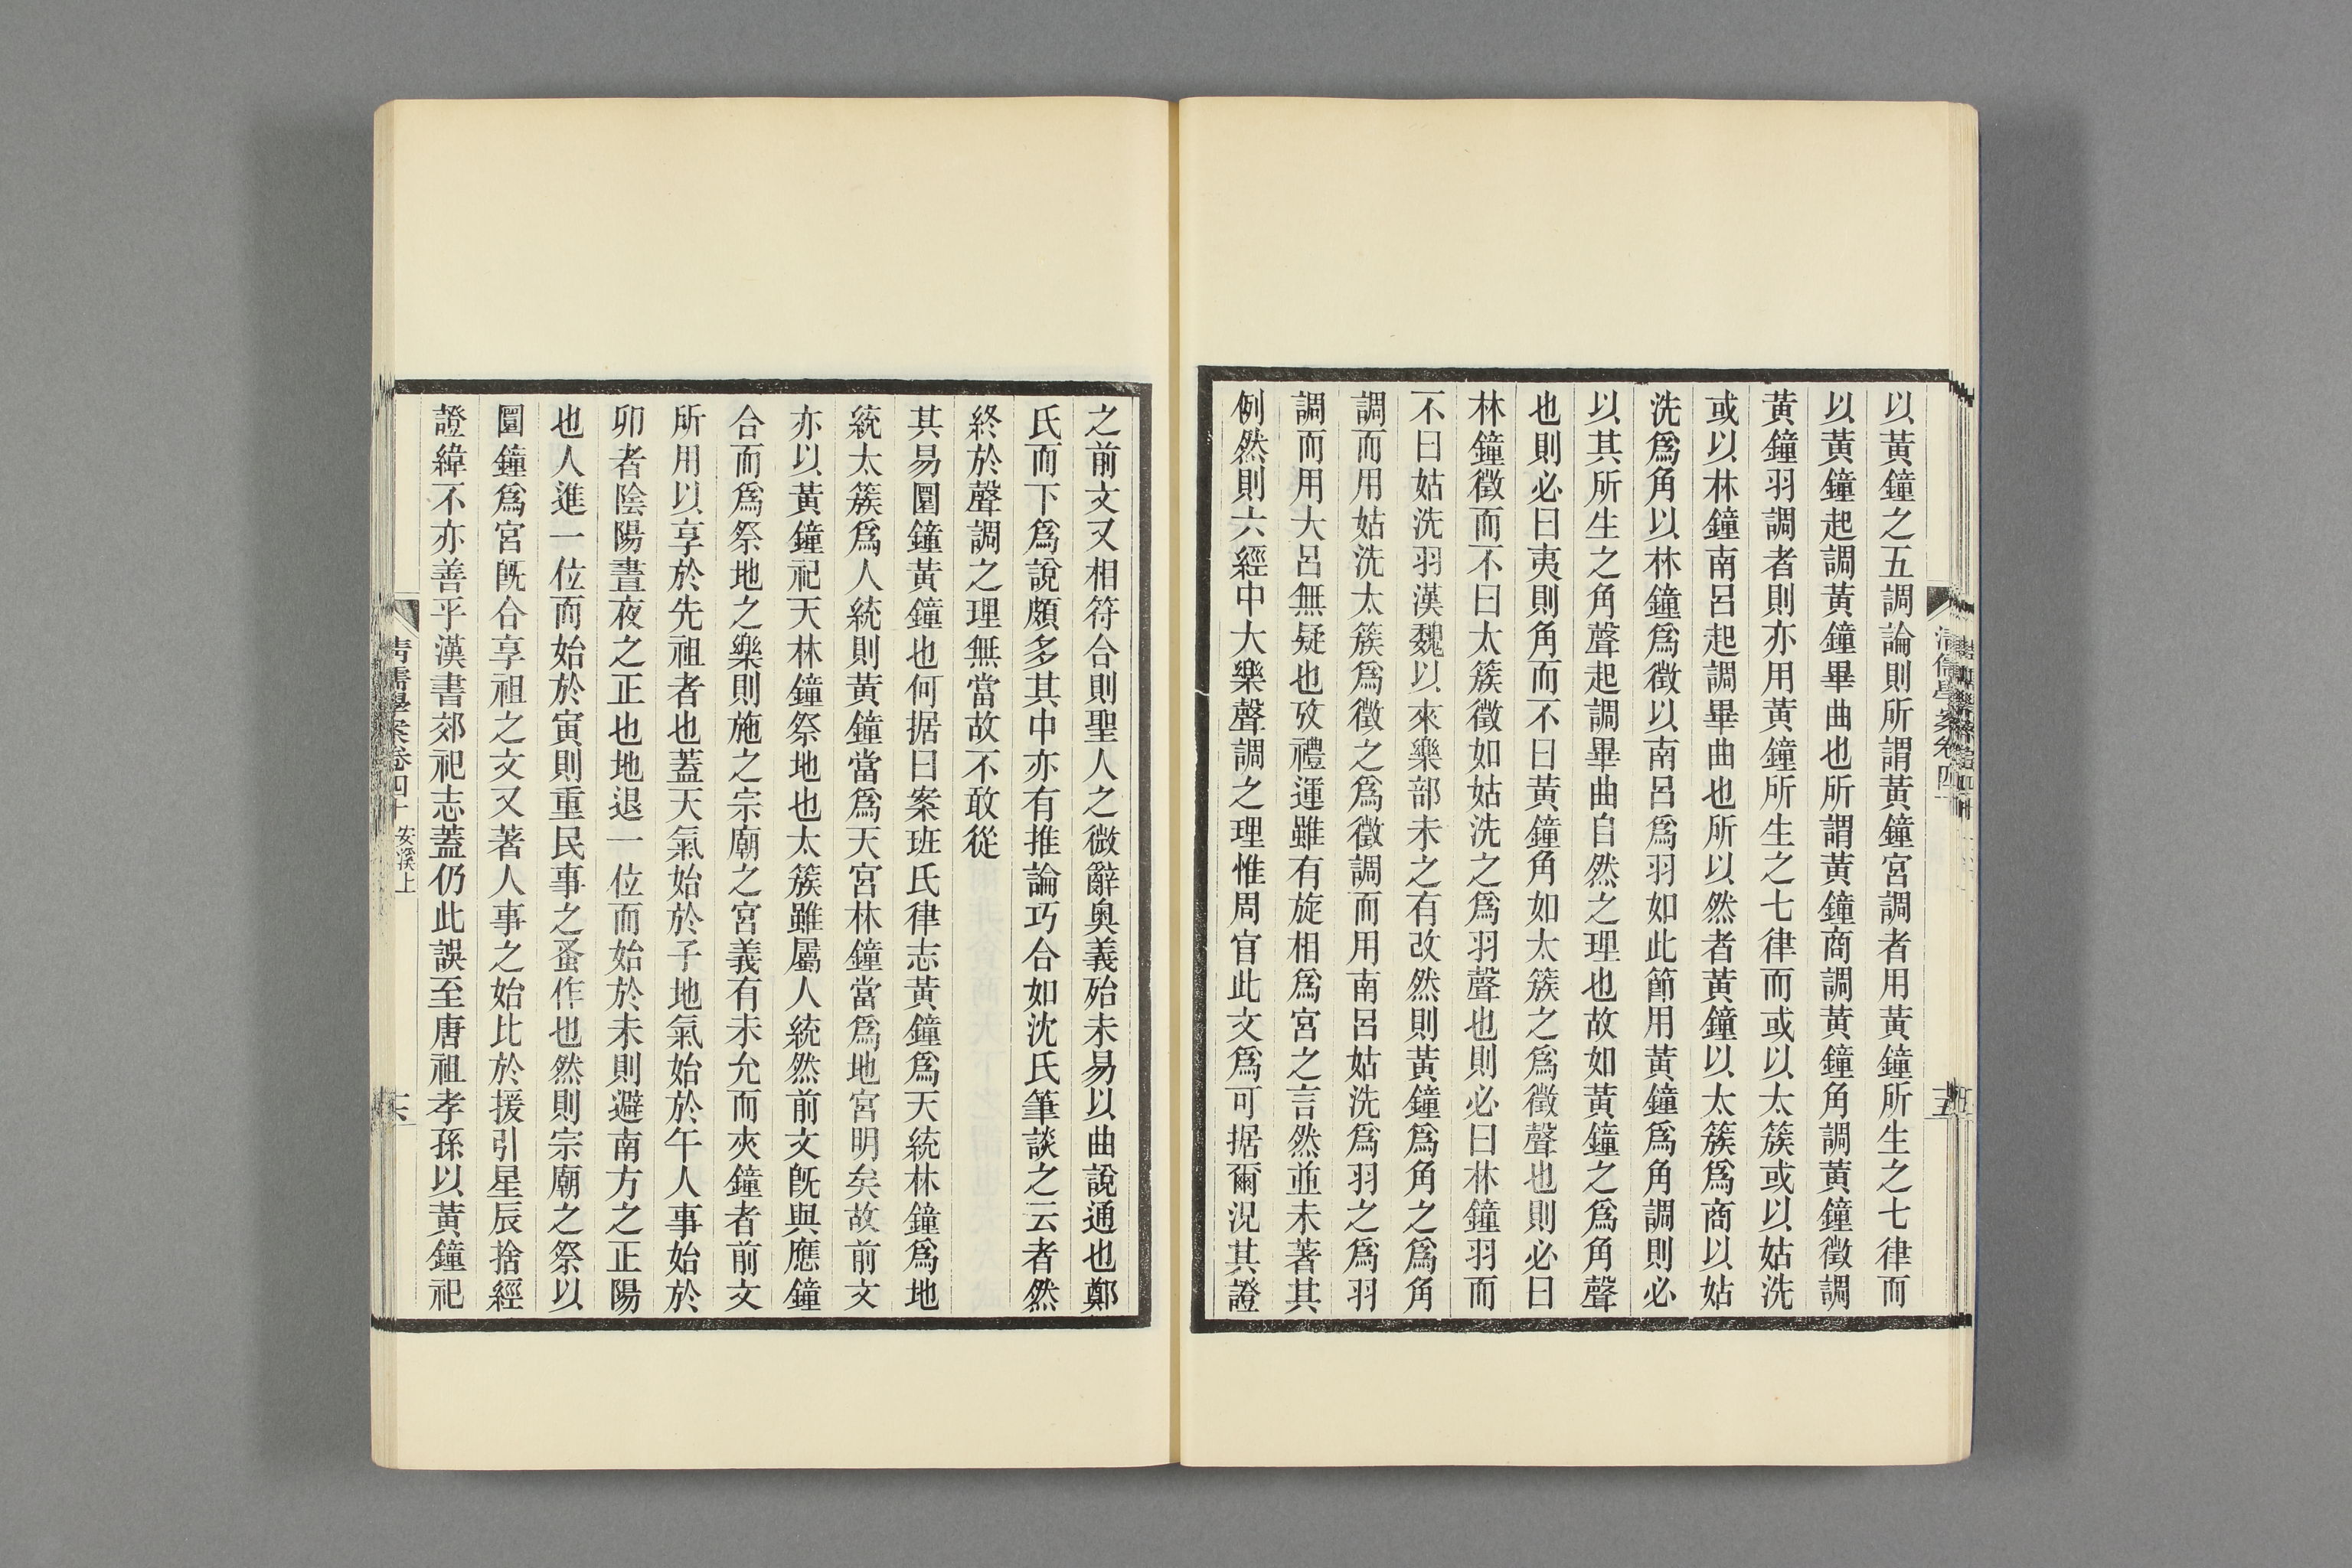 以黃鐘之五調論則所謂黃鐘宮調者用黃鐘所生之七律而
以黃鐘起調黃鐘畢曲也所謂黃鐘商調黃鐘角調黃鐘徵調
黃鐘羽調者則亦用黃鐘所生之七律而或以太簇或以姑洗
或以林鐘南呂起調畢曲也所以然者黃鐘以太簇爲商以姑
洗爲角以林鐘爲徵以南呂爲羽如此節用黃鐘爲角調則必
以其所生之角聲起調畢曲自然之理也故如黃鐘之爲角聲
也則必曰夷則角而不曰黃鐘角如太簇之爲徵聲也則必曰
林鐘徵而不曰太簇徵如姑洗之爲羽聲也則必曰林鐘羽而
不曰姑洗羽漢魏以來樂部未之有改然則黃鐘爲角之爲角
調而用姑洗太簇爲徵之爲徵調而用南呂姑洗爲羽之爲羽
調而用大呂無疑也攷禮運雖有旋相爲宮之言然並未著其
例然則六經中大樂聲調之理惟周官此文爲可据爾況其證
之前文又相符合則聖人之微辭奧義殆未易以曲說通也鄭
氏而下爲說頗多其中亦有推論巧合如沈氏筆談之云者然
終於聲調之理無當故不敢從
其易圜鐘黃鐘也何据曰案班氏律志黃鐘爲天統林鐘爲地
統太簇爲人統則黃鐘當爲天宮林鐘當爲地宮明矣故前文
亦以黃鐘祀天林鐘祭地也太簇雖屬人統然前文旣與應鐘
合而爲祭地之樂則施之宗廟之宮義有未允而夾鐘者前文
所用以享於先祖者也蓋天氣始於子地氣始於午人事始於
卯者陰陽晝夜之正也地退一位而始於未則避南方之正陽
也人進一位而始於寅則重民事之蚤作也然則宗廟之祭以
圜鐘爲宮旣合享祖之文又著人事之始比於援引星辰捨經
證緯不亦善乎漢書郊祀志蓋仍此誤至唐祖孝孫以黃鐘祀
清儒學案卷四十
安溪上